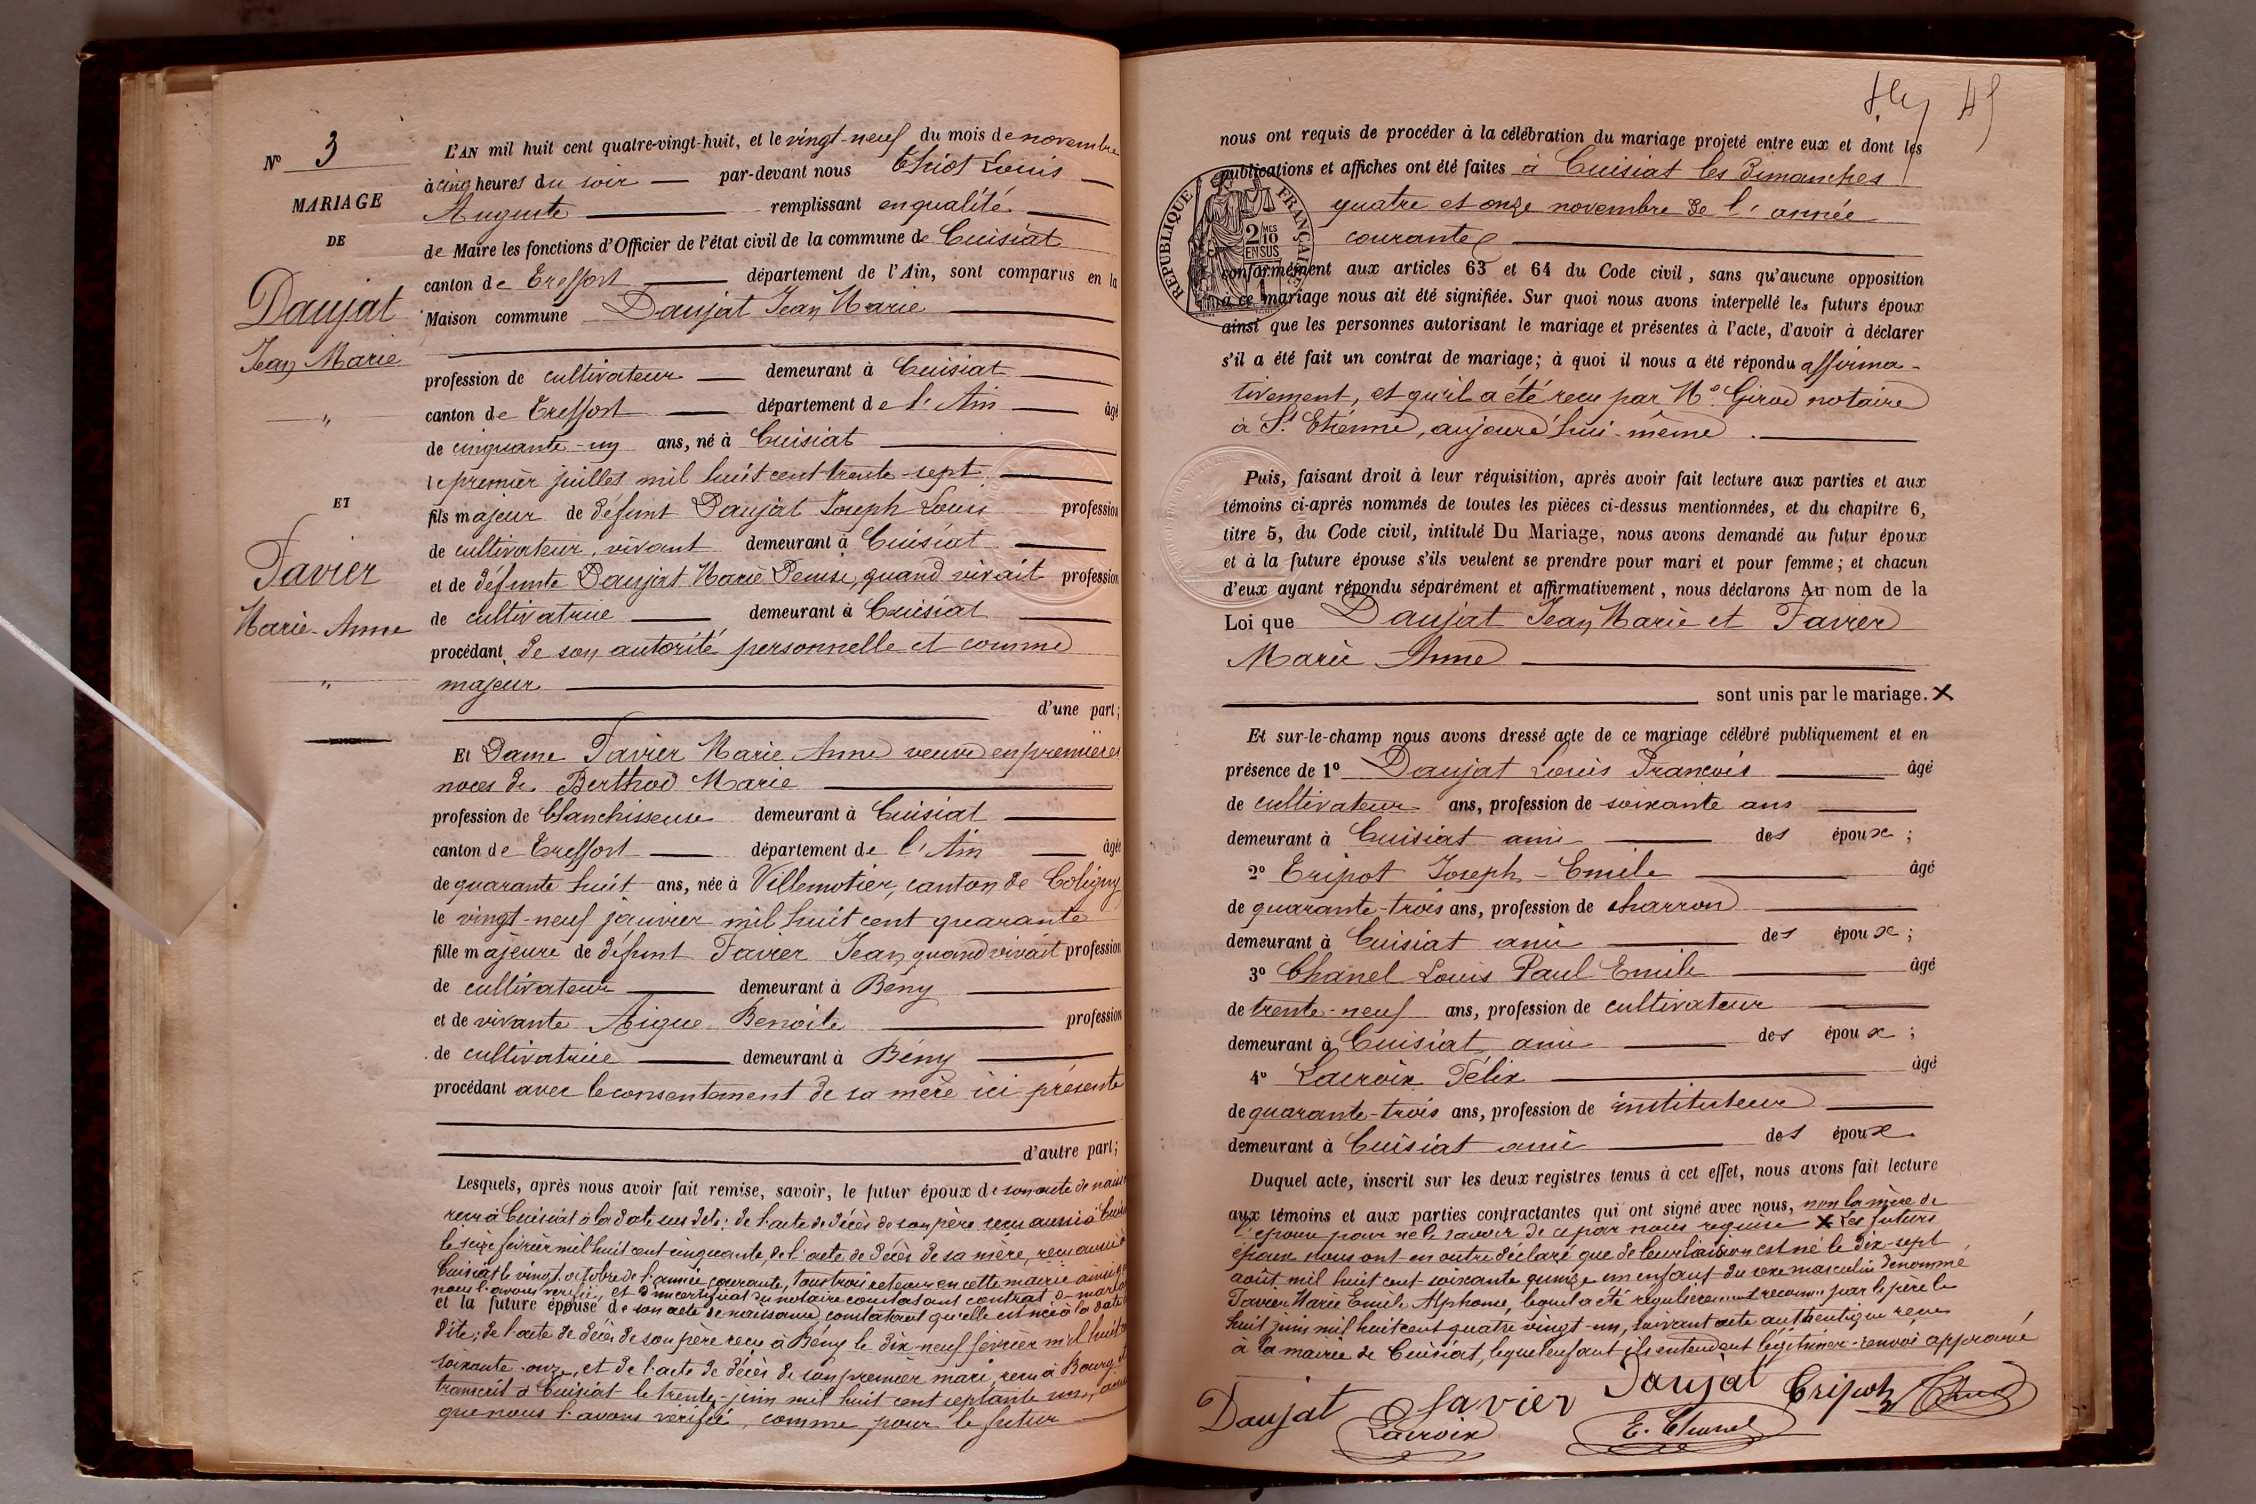 N° 3
MARIAGE
DE
Daujat
Jean Marie
ET
Favier
Marie-Anne
L'AN mil huit cent quatre-vingt-huit, et le vingt-neuf du mois de novembre
à cinq heures du soir — par-devant nous Thiot Louis —
Auguste — remplissant en qualité —
de Maire les fonctions d'Officier de l'état civil de la commune de Cuisiat
canton de Treffort — département de l'Ain, sont comparus en la
Maison commune Daujat Jean Marie —
profession de cultivateur — demeurant à Cuisiat —
canton de Treffort — département de l'Ain — âgé
de cinquante-un ans, né à Cuisiat —
le premier juillet mil huit cent trente-sept —
fils majeur de défunt Daujat Joseph Louis profession
de cultivateur, vivant demeurant à Cuisiat —
et de défunte Daujat Marie Denise, quand vivait profession
de cultivatrice — demeurant à Cuisiat —
procédant de son autorité personnelle et comme
majeur —
d'une part;
Et Dame Favier Marie Anne veuve en premières
noces de Berthod Marie —
profession de blanchisseuse demeurant à Cuisiat —
canton de Treffort — département de l'Ain — âgée
de quarante huit ans, née à Villemotier, canton de Coligny
le vingt-neuf janvier mil huit cent quarante
fille majeure de défunt Favier Jean quand vivait profession
de cultivateur — demeurant à Beny —
et de vivante Aigue Benoite — profession
de cultivatrice — demeurant à Bény —
procédant avec le consentement de sa mère ici présente
d'autre part;
Lesquels, après nous avoir fait remise, savoir, le futur époux de son acte de naiss
reçu à Cuisiat à la date sus dite; de l'acte de décès de son père reçu aussi à Cuisi
le seize février mil huit cent cinquante, de l'acte de décès de sa mère, reçu aussi à
Cuisiat le vingt octobre de l'année courante, tous trois retenus en cette mairie ainsi que
nous l'avons vérifié, et d'un certificat du notaire constatant contrat de maria
et la future épouse de son acte de naissance, constatant qu'elle est née à la date
dite; de l'acte de décès de son père reçu à Bény le dix-neuf février mil huit
soixante-onze, et de l'acte de décès de son premier mari, reçu à Bourg et
transcrit à Cuisiat le trente-juin mil huit cent septante un, ainsi
que nous l'avons vérifié, comme pour le futur —
45
nous ont requis de procéder à la célébration du mariage projeté entre eux et dont les
publications et affiches ont été faites à Cuisiat les Dimanches
quatre et onze novembre de l'année
courante —
RÉPUBLIQUE FRANÇAISE
2/10 MES EN SUS
conformément aux articles 63 et 64 du Code civil, sans qu'aucune opposition
à ce mariage nous ait été signifiée. Sur quoi nous avons interpellé les futurs époux
ainsi que les personnes autorisant le mariage et présentes à l'acte, d'avoir à déclarer
s'il a été fait un contrat de mariage; à quoi il nous a été répondu affirma-
tivement, et qu'il a été reçu par Me Girod notaire
à St Etienne, aujourd'hui-même. —
Puis, faisant droit à leur réquisition, après avoir fait lecture aux parties et aux
témoins ci-après nommés de toutes les pièces ci-dessus mentionnées, et du chapitre 6,
titre 5, du Code civil, intitulé Du Mariage, nous avons demandé au futur époux
et à la future épouse s'ils veulent se prendre pour mari et pour femme; et chacun
d'eux ayant répondu séparément et affirmativement, nous déclarons Au nom de la
Loi que Daujat Jean Marie et Favier
Marie Anne —
sont unis par le mariage. X
Et sur-le-champ nous avons dressé acte de ce mariage célébré publiquement et en
présence de 1° Daujat Louis François — âgé
de cultivateur ans, profession de soixante ans —
demeurant à Cuisiat ami — des époux;
2° Tripot Joseph-Emile — âgé
de quarante-trois ans, profession de charron —
demeurant à Cuisiat ami — des époux;
3° Chanel Louis Paul Emile — âgé
de trente-neuf ans, profession de cultivateur —
demeurant à Cuisiat, ami — des époux;
4° Lacroix Félix — âgé
de quarante-trois ans, profession de instituteur —
demeurant à Cuisiat ami — des époux.
Duquel acte, inscrit sur les deux registres tenus à cet effet, nous avons fait lecture
aux témoins et aux parties contractantes qui ont signé avec nous, non la mère de
l'épouse pour ne le savoir de ce par nous requise X Les futurs
époux nous ont en outre déclaré que de leur liaison est né le dix-sept
août mil huit cent soixante quinze un enfant du sexe masculin dénommé
Favier Marie Emile Alphonse, lequel a été régulièrement reconnu par le père le
huit juin mil huit cent quatre vingt-un, suivant acte authentique reçu
à la mairie de Cuisiat, lequel enfant ils entendent légitimer-renvoi approuvé
Daujat Favier Daujat Tripot
Lacroix E. Chanel